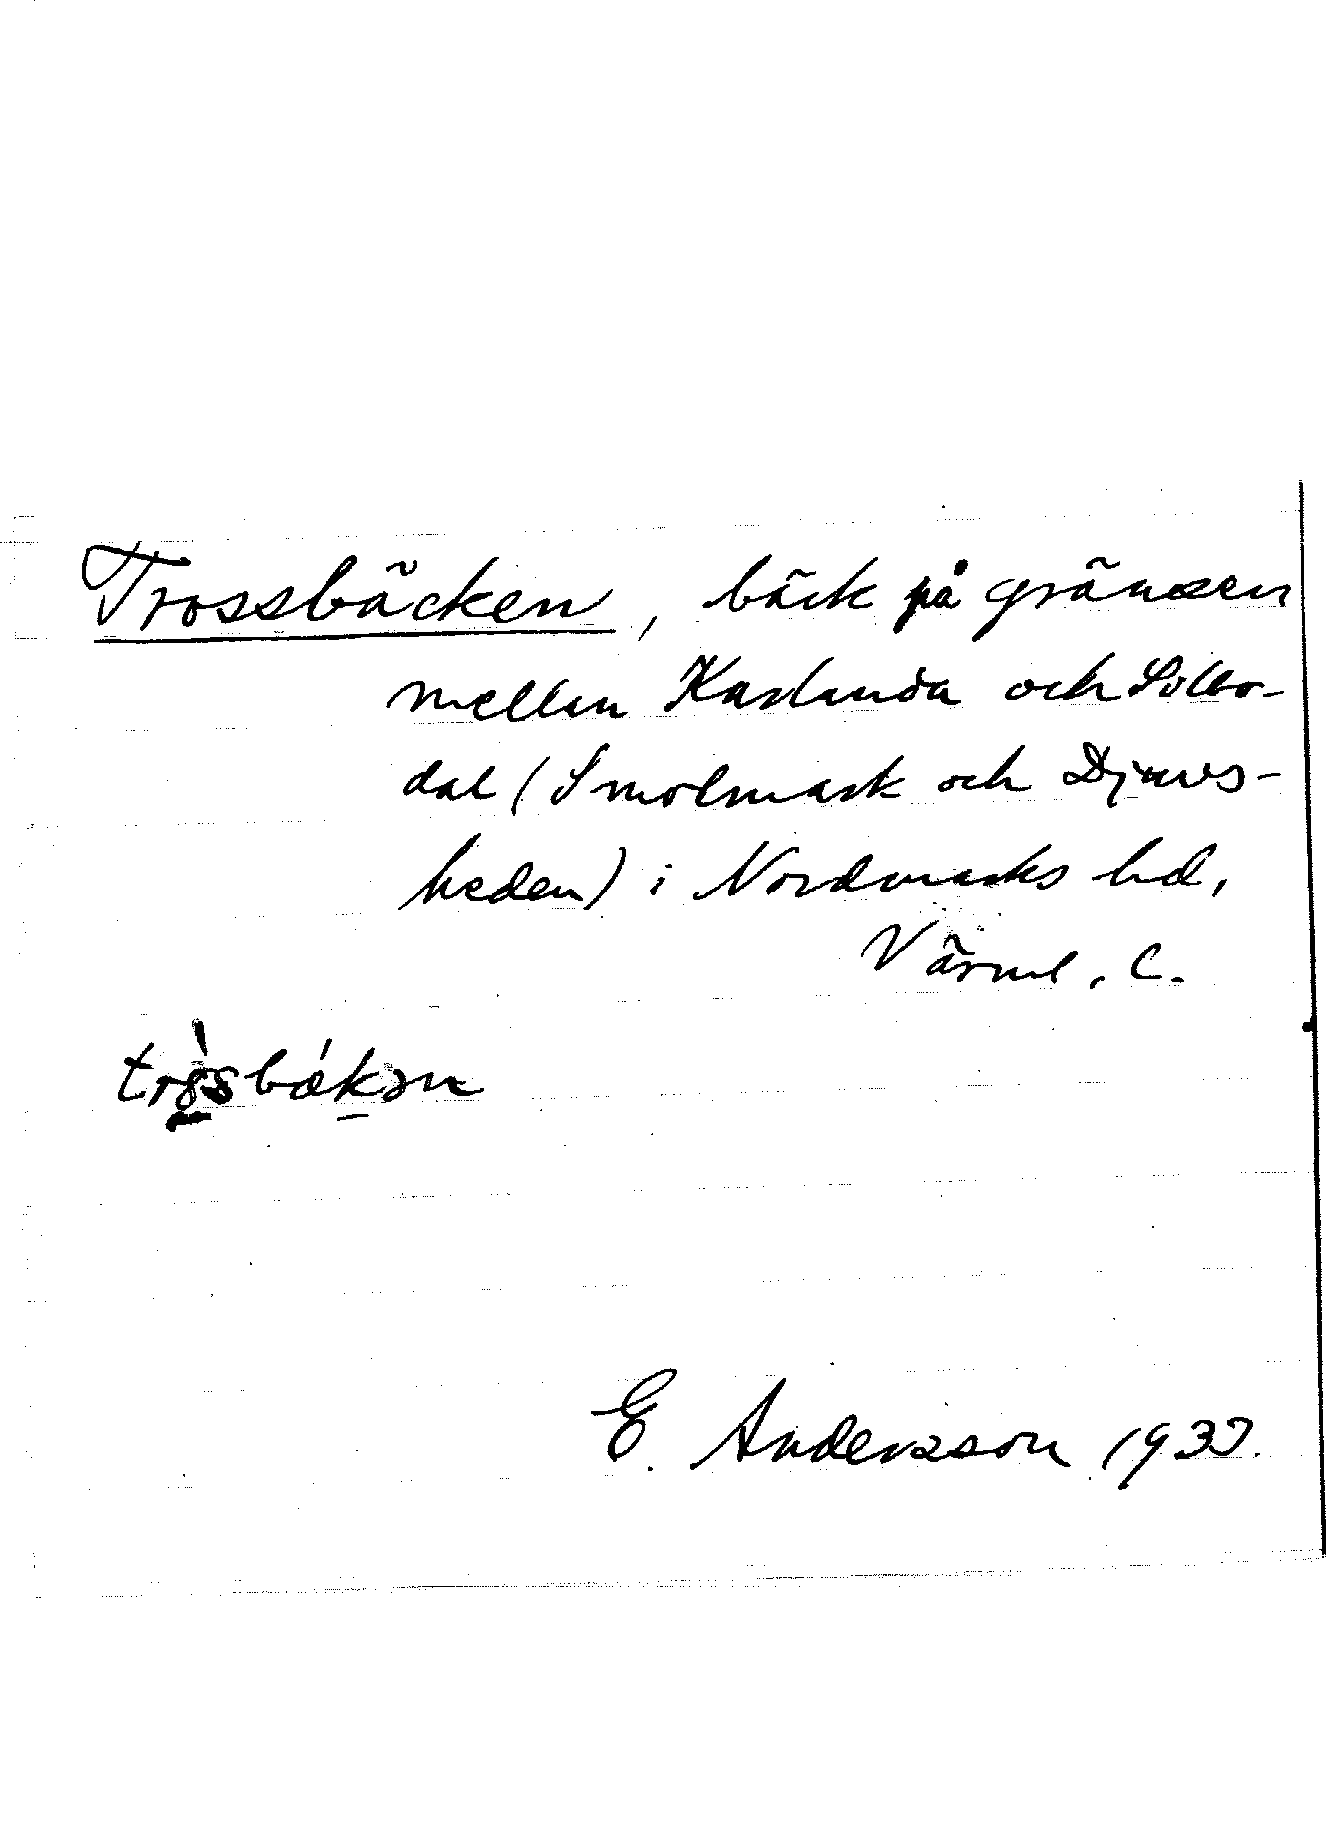 Trossbäcken, bäck på gränsen
mellan Karlanda och Sillbo-
dal (Smolmark och Djurs-
heden) i Nordmarks hd,
Värml. C.
E. Andersson 1937.